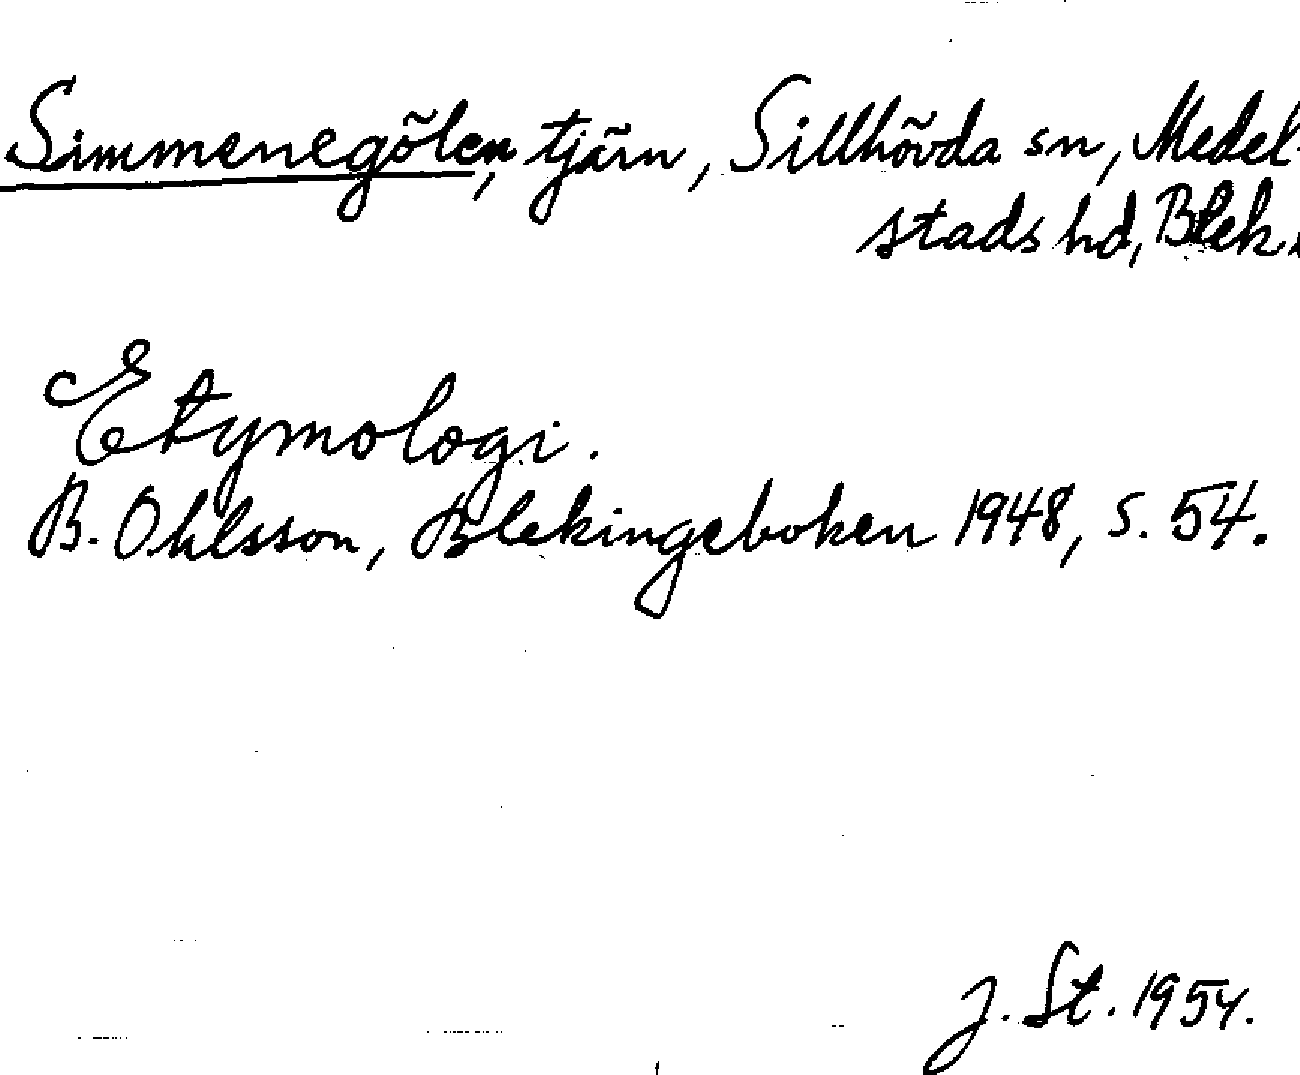 Simmenegölen, tjärn, Sillhövda sn, Medel-
stads hd, Blek.
Etymologi.
B. Ohlsson, Blekingeboken 1948, s. 54.
J. St. 1954.